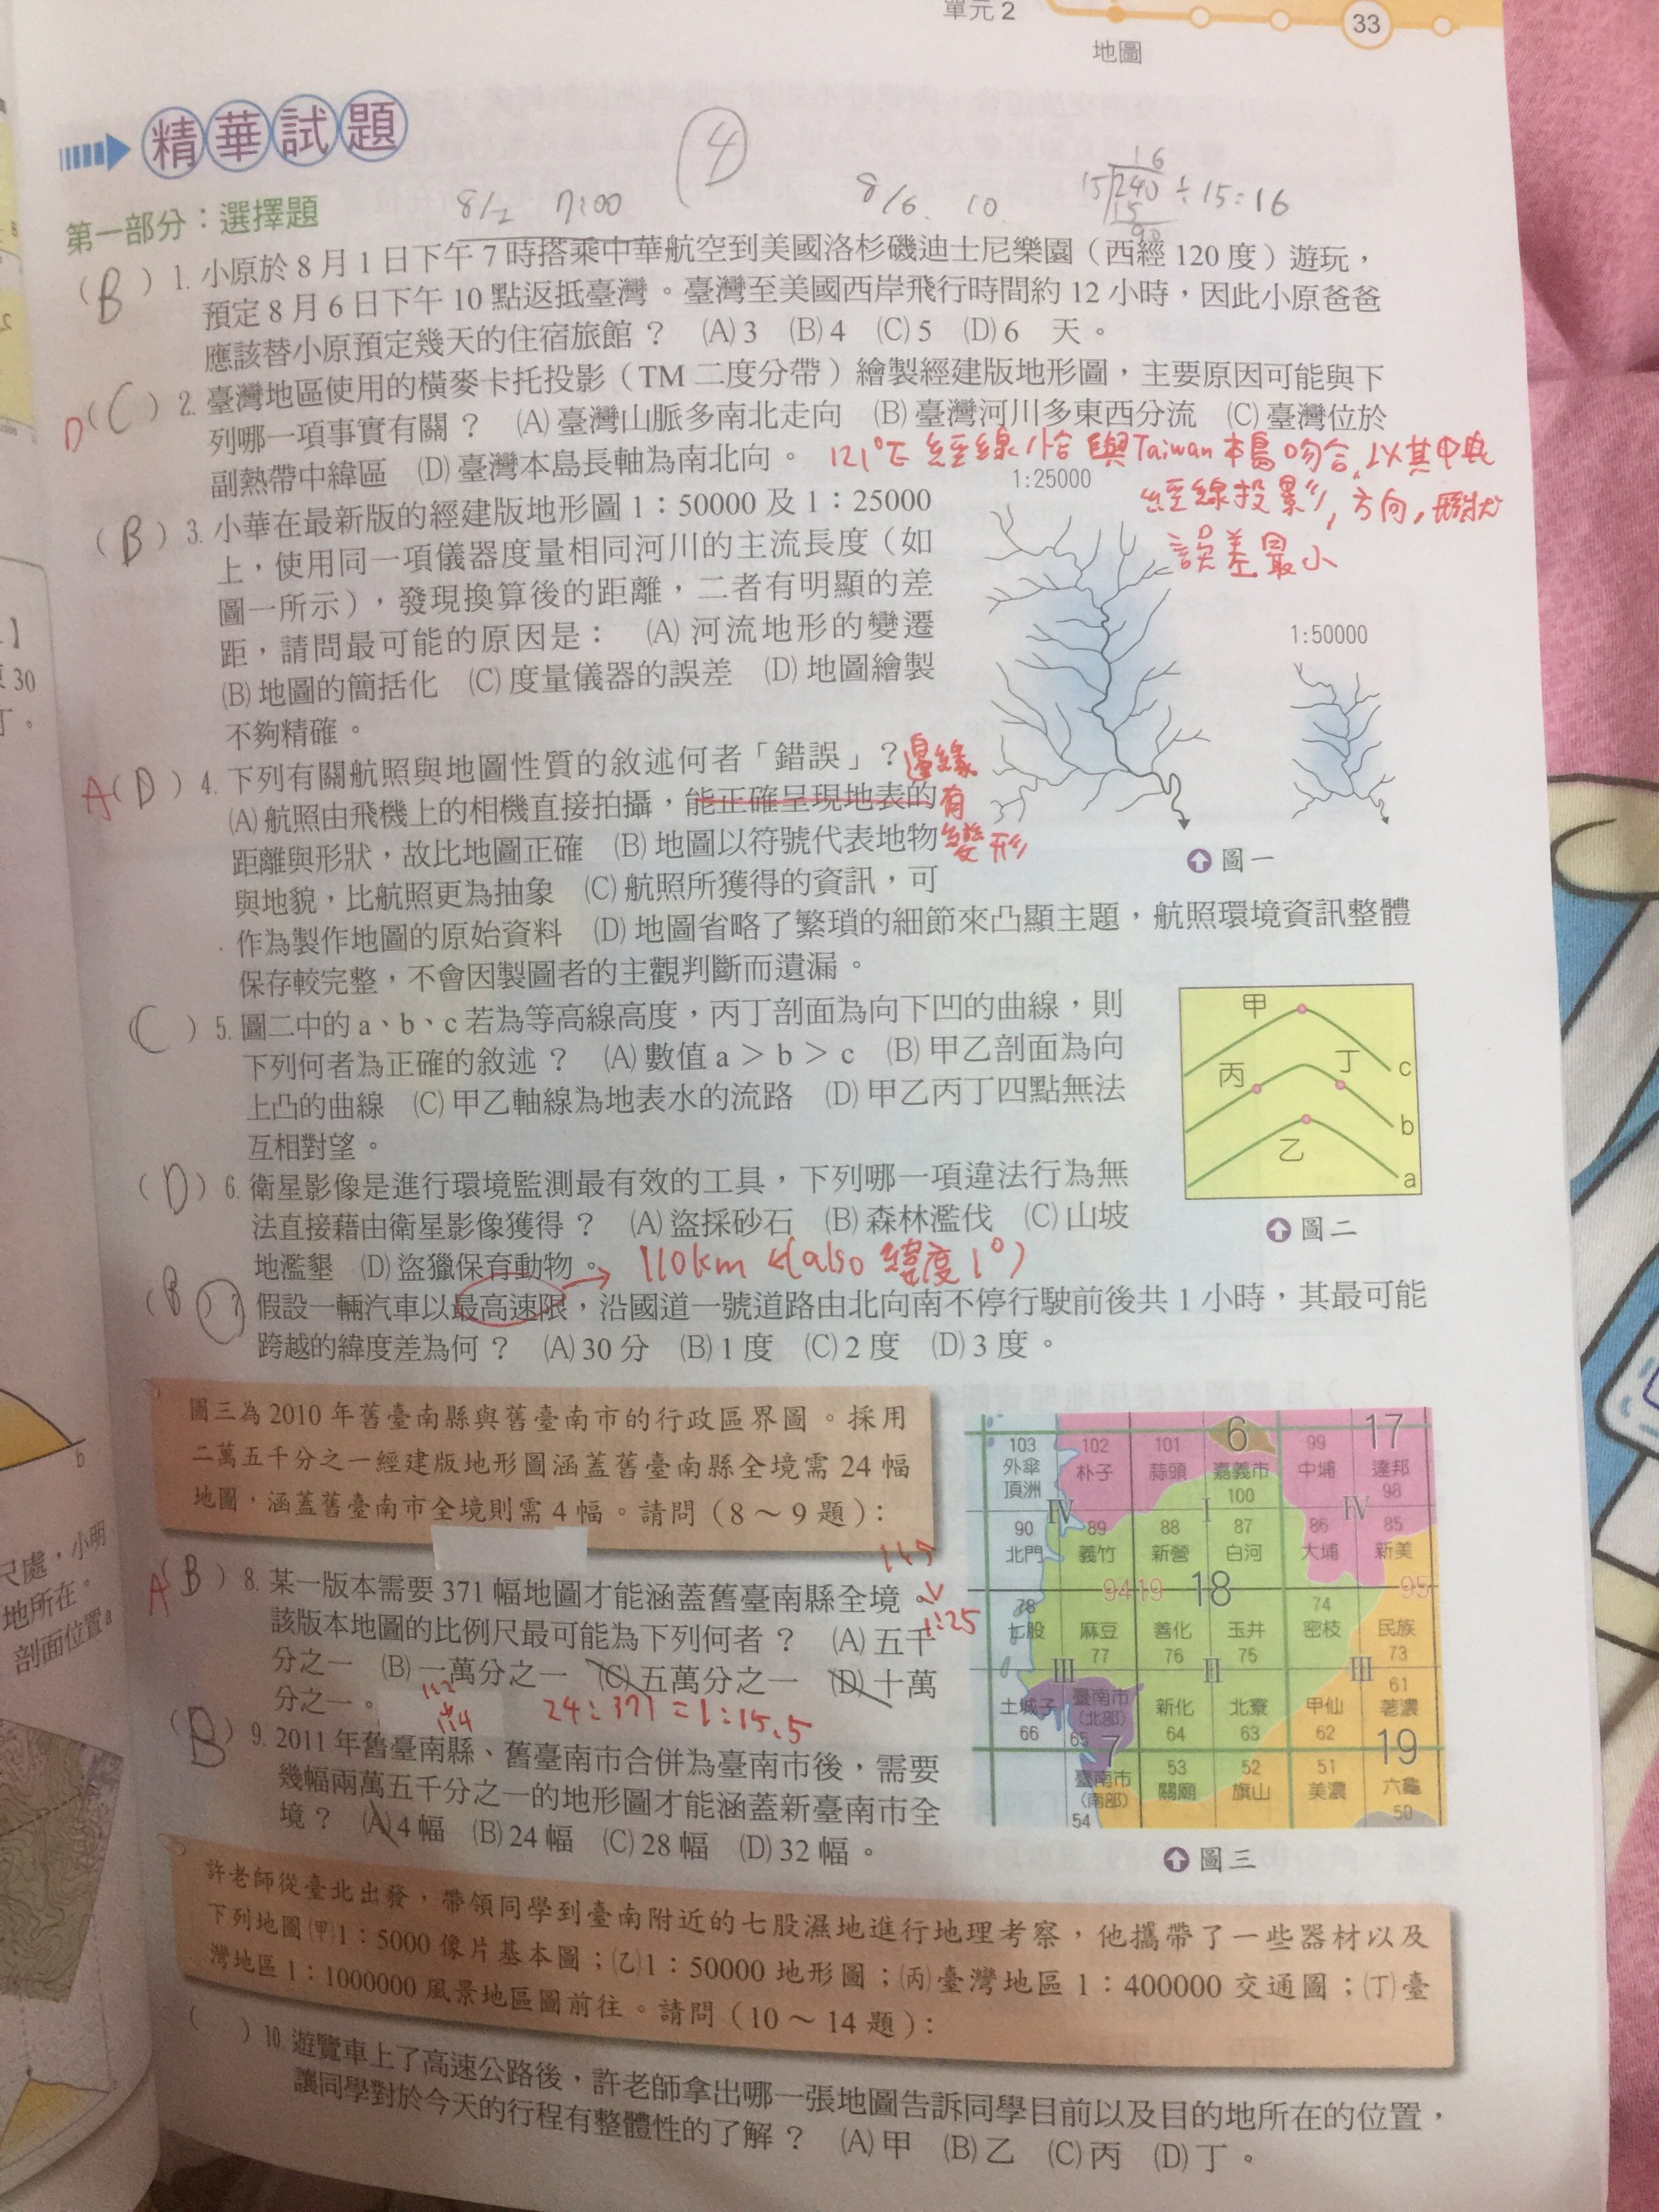 單元2
33
地圖
精華試題
④
第一部分：選擇題
8/2 7:00
8/6. 10.
16
15 240 ÷15=16
15
90
(B) 1. 小原於 8 月 1 日下午 7 時搭乘中華航空到美國洛杉磯迪士尼樂園（西經 120 度）遊玩，
預定 8 月 6 日下午 10 點返抵臺灣。臺灣至美國西岸飛行時間約 12 小時，因此小原爸爸
應該替小原預定幾天的住宿旅館？ (A) 3 (B) 4 (C) 5 (D) 6 天。
D (C) 2. 臺灣地區使用的橫麥卡托投影（TM 二度分帶）繪製經建版地形圖，主要原因可能與下
列哪一項事實有關？ (A) 臺灣山脈多南北走向 (B) 臺灣河川多東西分流 (C) 臺灣位於
副熱帶中緯區 (D) 臺灣本島長軸為南北向。
121°E 經線恰與Taiwan本島吻合，以其中央
經線投影，方向，形狀
誤差最小
(B) 3. 小華在最新版的經建版地形圖 1：50000 及 1：25000
上，使用同一項儀器度量相同河川的主流長度（如
圖一所示），發現換算後的距離，二者有明顯的差
距，請問最可能的原因是： (A) 河流地形的變遷
(B) 地圖的簡括化 (C) 度量儀器的誤差 (D) 地圖繪製
不夠精確。
1:25000
1:50000
圖一
A (D) 4. 下列有關航照與地圖性質的敘述何者「錯誤」？
(A) 航照由飛機上的相機直接拍攝，能正確呈現地表的
距離與形狀，故比地圖正確 (B) 地圖以符號代表地物
與地貌，比航照更為抽象 (C) 航照所獲得的資訊，可
作為製作地圖的原始資料 (D) 地圖省略了繁瑣的細節來凸顯主題，航照環境資訊整體
保存較完整，不會因製圖者的主觀判斷而遺漏。
邊緣
有
變形
(C) 5. 圖二中的 a、b、c 若為等高線高度，丙丁剖面為向下凹的曲線，則
下列何者為正確的敘述？ (A) 數值 a > b > c (B) 甲乙剖面為向
上凸的曲線 (C) 甲乙軸線為地表水的流路 (D) 甲乙丙丁四點無法
互相對望。
甲
丙
丁
乙
c
b
a
圖二
(D) 6. 衛星影像是進行環境監測最有效的工具，下列哪一項違法行為無
法直接藉由衛星影像獲得？ (A) 盜採砂石 (B) 森林濫伐 (C) 山坡
地濫墾 (D) 盜獵保育動物。
110km (also 緯度1°)
(B) 7. 假設一輛汽車以最高速限，沿國道一號道路由北向南不停行駛前後共 1 小時，其最可能
跨越的緯度差為何？ (A) 30 分 (B) 1 度 (C) 2 度 (D) 3 度。
圖三為 2010 年舊臺南縣與舊臺南市的行政區界圖。採用
二萬五千分之一經建版地形圖涵蓋舊臺南縣全境需 24 幅
地圖，涵蓋舊臺南市全境則需 4 幅。請問（8～9 題）：
A (B) 8. 某一版本需要 371 幅地圖才能涵蓋舊臺南縣全境，
該版本地圖的比例尺最可能為下列何者？ (A) 五千
分之一 (B) 一萬分之一 (C) 五萬分之一 (D) 十萬
分之一。
1:5
1:25
1:2
1:4
24:371=1:15.5
(B) 9. 2011 年舊臺南縣、舊臺南市合併為臺南市後，需要
幾幅兩萬五千分之一的地形圖才能涵蓋新臺南市全
境？ (A) 4 幅 (B) 24 幅 (C) 28 幅 (D) 32 幅。
103 102 101 6 99 17
外傘 朴子 蒜頭 嘉義市 中埔 達邦
頂洲 100 98
IV I IV
90 89 88 87 86 85
北門 義竹 新營 白河 大埔 新美
94 19 18 95
78 74
七股 麻豆 善化 玉井 密枝 民族
77 76 75 73
III II III
61
土城子 臺南市 新化 北寮 甲仙 荖濃
(北部)
66 65 64 63 62
7 19
53 52 51
臺南市 關廟 旗山 美濃 六龜
(南部)
54 50
圖三
許老師從臺北出發，帶領同學到臺南附近的七股濕地進行地理考察，他攜帶了一些器材以及
下列地圖(甲)1：5000 像片基本圖；(乙)1：50000 地形圖；(丙)臺灣地區 1：400000 交通圖；(丁)臺
灣地區 1：1000000 風景地區圖前往。請問（10～14 題）：
( ) 10. 遊覽車上了高速公路後，許老師拿出哪一張地圖告訴同學目前以及目的地所在的位置，
讓同學對於今天的行程有整體性的了解？ (A) 甲 (B) 乙 (C) 丙 (D) 丁。
30
尺處，小明
地所在。
剖面位置a
b